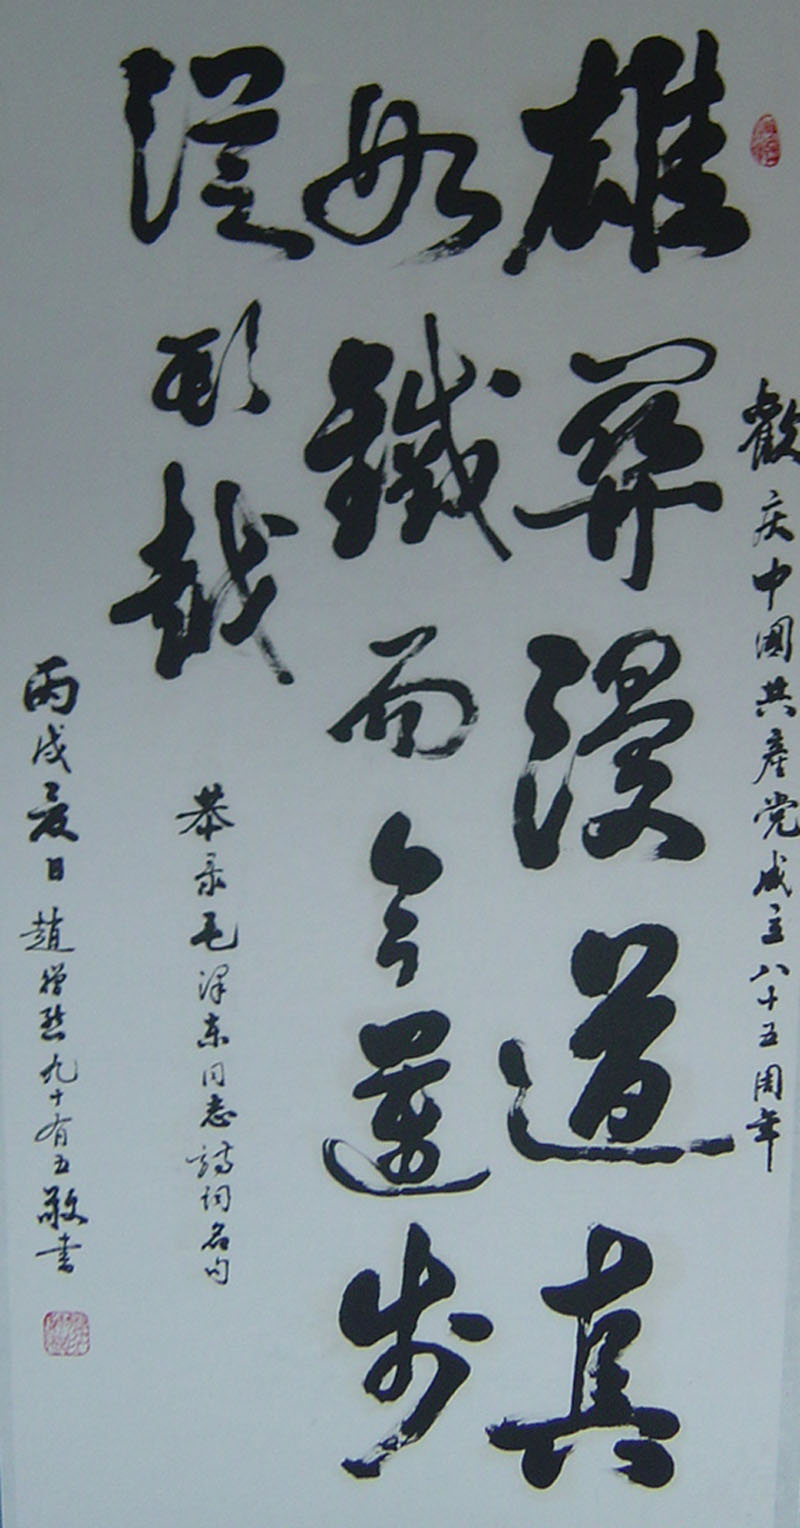 歡庆中國共產党成立八十五周年
雄關漫道真
如鐵而今邁步
從頭越
恭录毛泽东同志詩词名句
丙戌夏日趙九十有五敬书